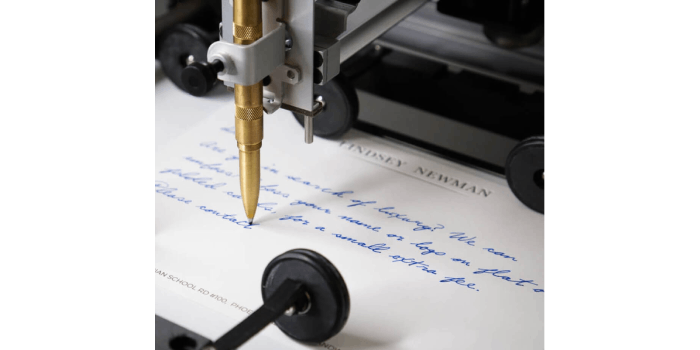 LINDSEY NEWMAN
in search of luxury? We can
your name or logo on flat o
folded cards for a small extra fee.
Please contact
AN SCHOOL RD #100, PHOE